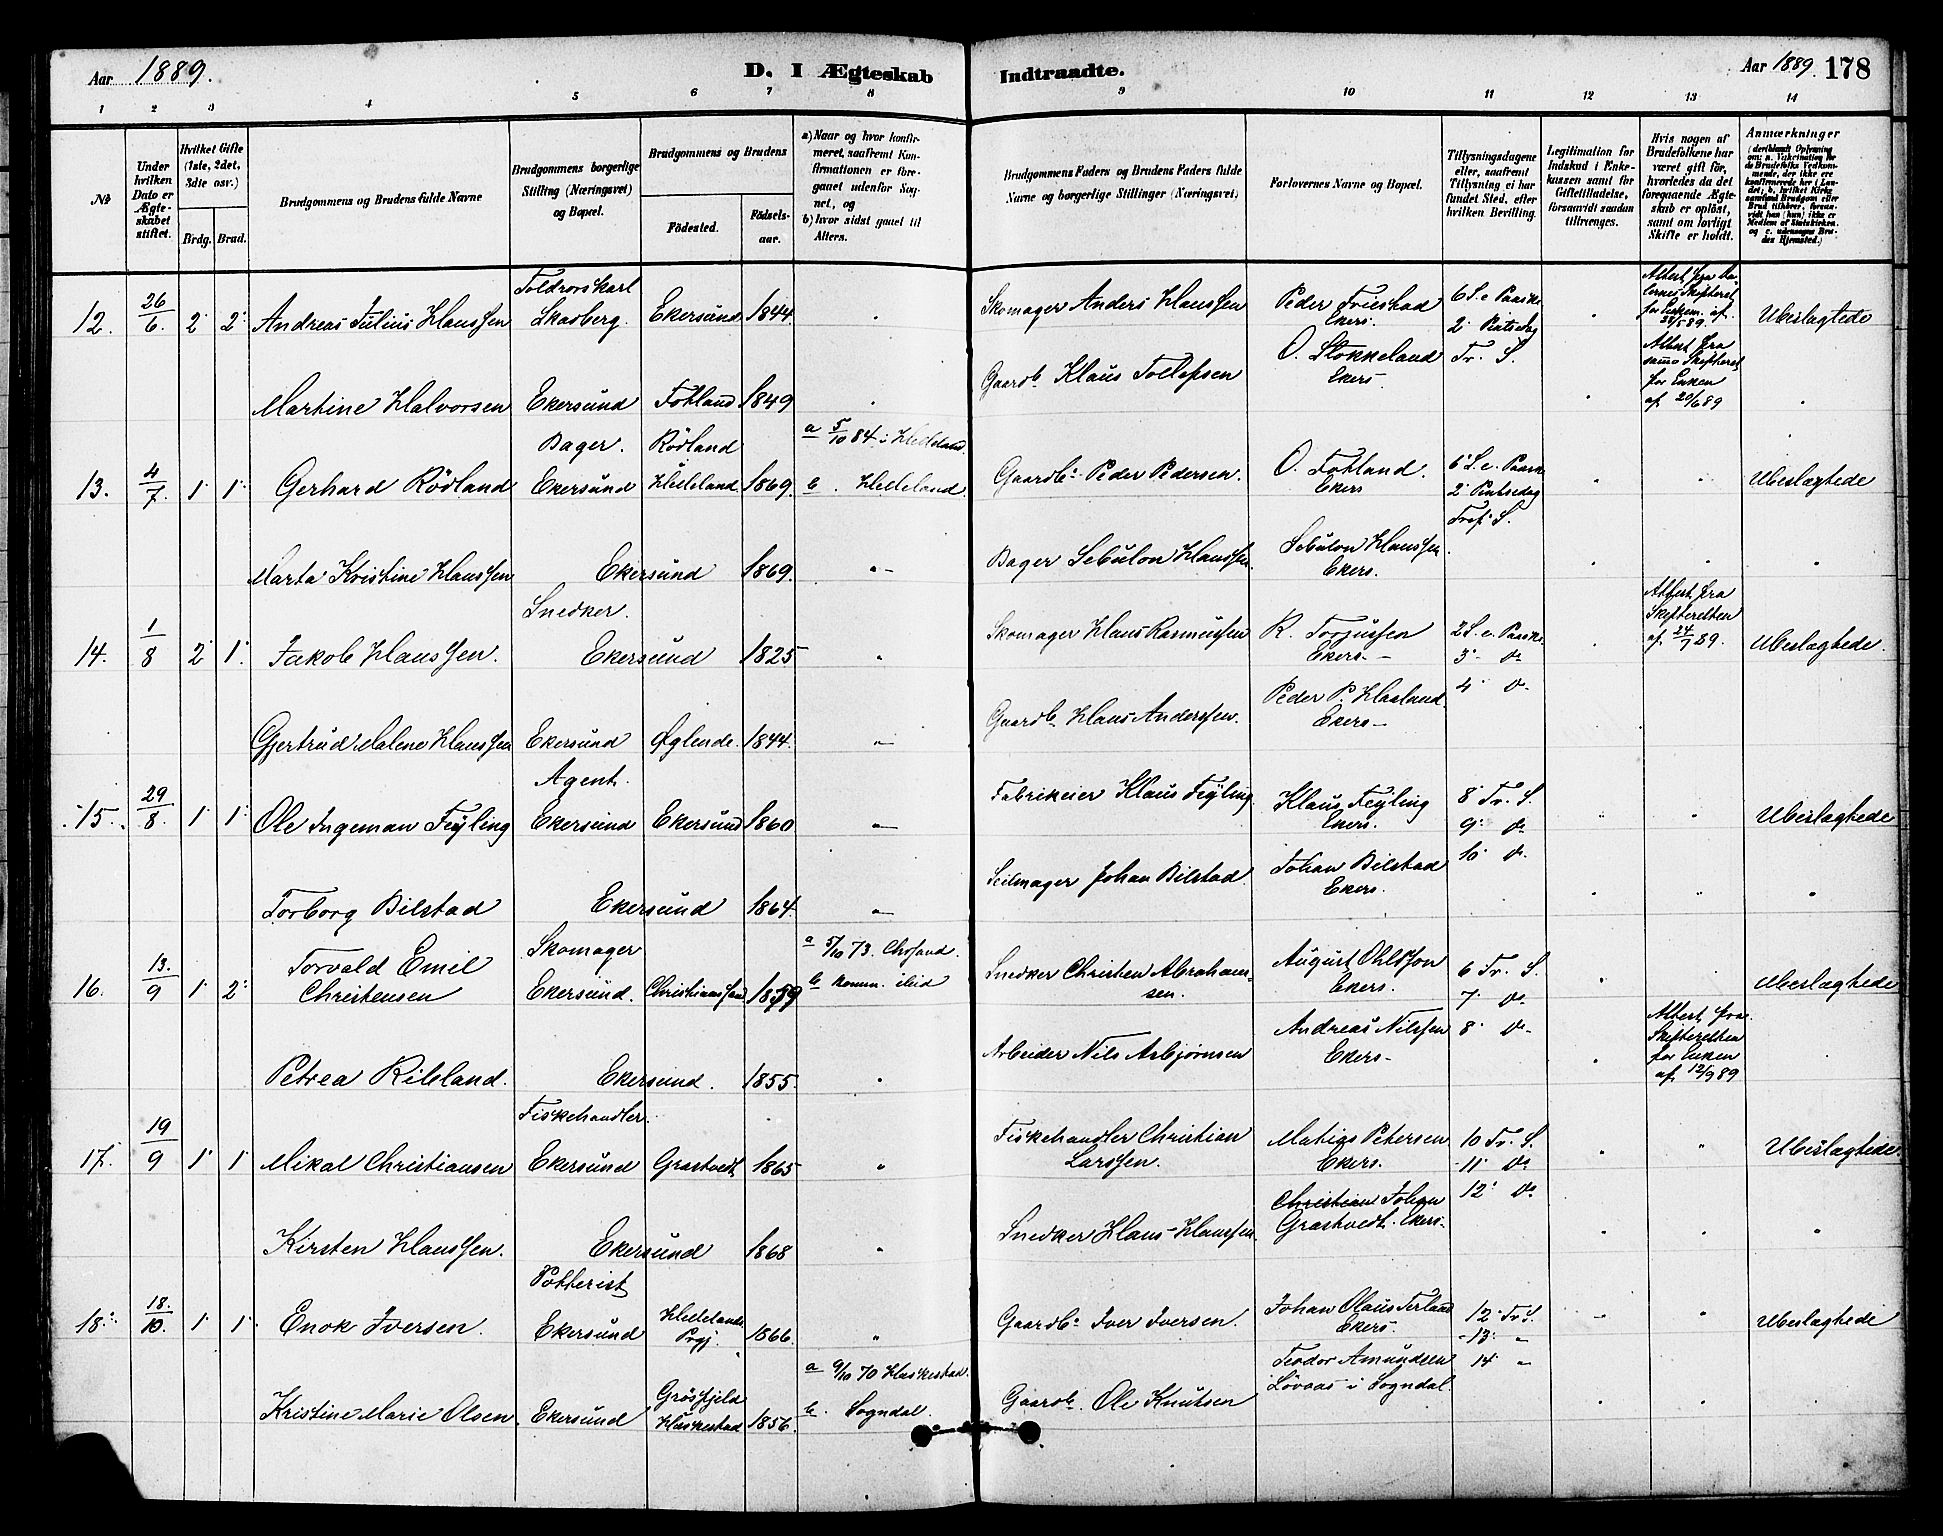 Aar 1889. D. I Ægteskab Indtraadte. Aar 1889. 178
1 2 3 4 5 6 7 8 9 10 11 12 13 14
№
Under hvilken Dato er Ægteskabet stiftet.
Hvilket Gifte (1ste, 2det, 3die osv.)
Brdg. Brud.
Brudgommens og Brudens fulde Navne
Brudgommens borgerlige Stilling (Næringsvei) og Bopæl.
Brudgommens og Brudens
Födested. Födselsaar.
a) Naar og hvor konfirmeret, saafremt Konfirmationen er foregaaet udenfor Sognet, og
b) hvor sidst gaaet til Alters.
Brudgommens Faders og Brudens Faders fulde Navne og borgerlige Stillinger (Næringsvei).
Forlovernes Navne og Bopæl.
Tillysningsdagene eller, saafremt Tillysning ei har fundet Sted, efter hvilken Bevilling.
Legitimation for Indskud i Enkekassen samt for Giftetilladelse, forsaavidt saadan tiltrænges.
Hvis nogen af Brudefolkene har været gift før, hvorledes da det foregaaende Ægteskab er oplöst, samt om lovligt Skifte er holdt.
Anmærkninger
12. 26/6. 2 2 Andreas Julius Klaussen Toldrorskarl Skasberg. Ekersund 1844. Skomager Anders Klaussen Peder Friestad Ekers. 6 S. e. Paaske 2 Pintsedag Tr. S. Ubeslægtede
Martine Halvorsen Ekersund Fotland 1849 Gaardb. Klaus Tollefsen O. Stokkeland Ekers. Attest fra samme Skifteret for Enken af 20/6 89
13. 4/7. 1 1 Gerhard Rödland Bager. Ekersund Rödland Helleland 1869. a 5/10 84 i Helleland b. Helleland Gaardb. Peder Pedersen. O. Fotland Ekers 6 S. e. Paaske 2 Pintsedag Tref. S. Ubeslægtede
Marta Kristine Klaussen Ekersund 1869. Bager Sebulon Klaussen. Sebulon Klaussen Ekers.
14. 1/8 2 1. Jakob Klaussen. Snedker. Ekersund 1825 Skomager Klaus Rasmussen K. Torjussen Ekers. 2 S. e. Paaske 3 do 4 do Attest fra Skifteretten af 24/7 89. Ubeslægtede.
Gjertrud Malene Klaussen Ekersund Øglende. 1844. Gaardb. Klaus Anderssen. Peder P. Haaland Ekers
15. 29/8. 1 1 Ole Ingeman Feyling Agent. Ekersund Ekersund 1860 Fabrikeier Klaus Feyling. Klaus Feyling Ekers. 8 Tr. S. 9 do 10 do Ubeslægtede
Torborg Bilstad Ekersund 1864. Seilmager Johan Bilstad. Johan Bilstad Ekers.
16. 13./9 1 2 Torvald Emil Christensen Skomager Ekersund. Christianssand a 5/10 73. Chrsand. b komm. ibid Snedker Christen Abrahamsen. August Ohlsson Ekers. 6 Tr. S. 7 do 8 do Ubeslægtede
Petrea Rileland. Ekersund. 1855. Arbeider Nils Asbjørnsen Andreas Nilssen Ekers Attest fra Skifteretten for Enken af 12/9 89
17. 19/9 1 1 Mikal Christiansen Fiskehandler. Ekersund Grastvedt 1865 Fiskehandler Christian Larssen. Matias Petersen Ekers. 10 Tr. S. 11 do 12 do Ubeslægtede.
Kirsten Klaussen. Ekersund 1868 Snedker Klaus Klaussen. Christian Johan Grastvedt. Ekers.
18. 18./10. 1 1 Enok Iversen. Potterist Ekersund Hellelands Prgj. 1866. Gaardb. Iver Iversen. Johan Olaus Terland Ekers. 12 Tr. S. 13 " 14 " Ubeslægtede
Kristine Marie Olsen. Ekersund Grösfjeld Huskestad 1856. a 9/10 70 Huskestad. b. Sogndal. Gaardb. Ole Knutsen Teodor Amundsen Lövaas i Sogndal.